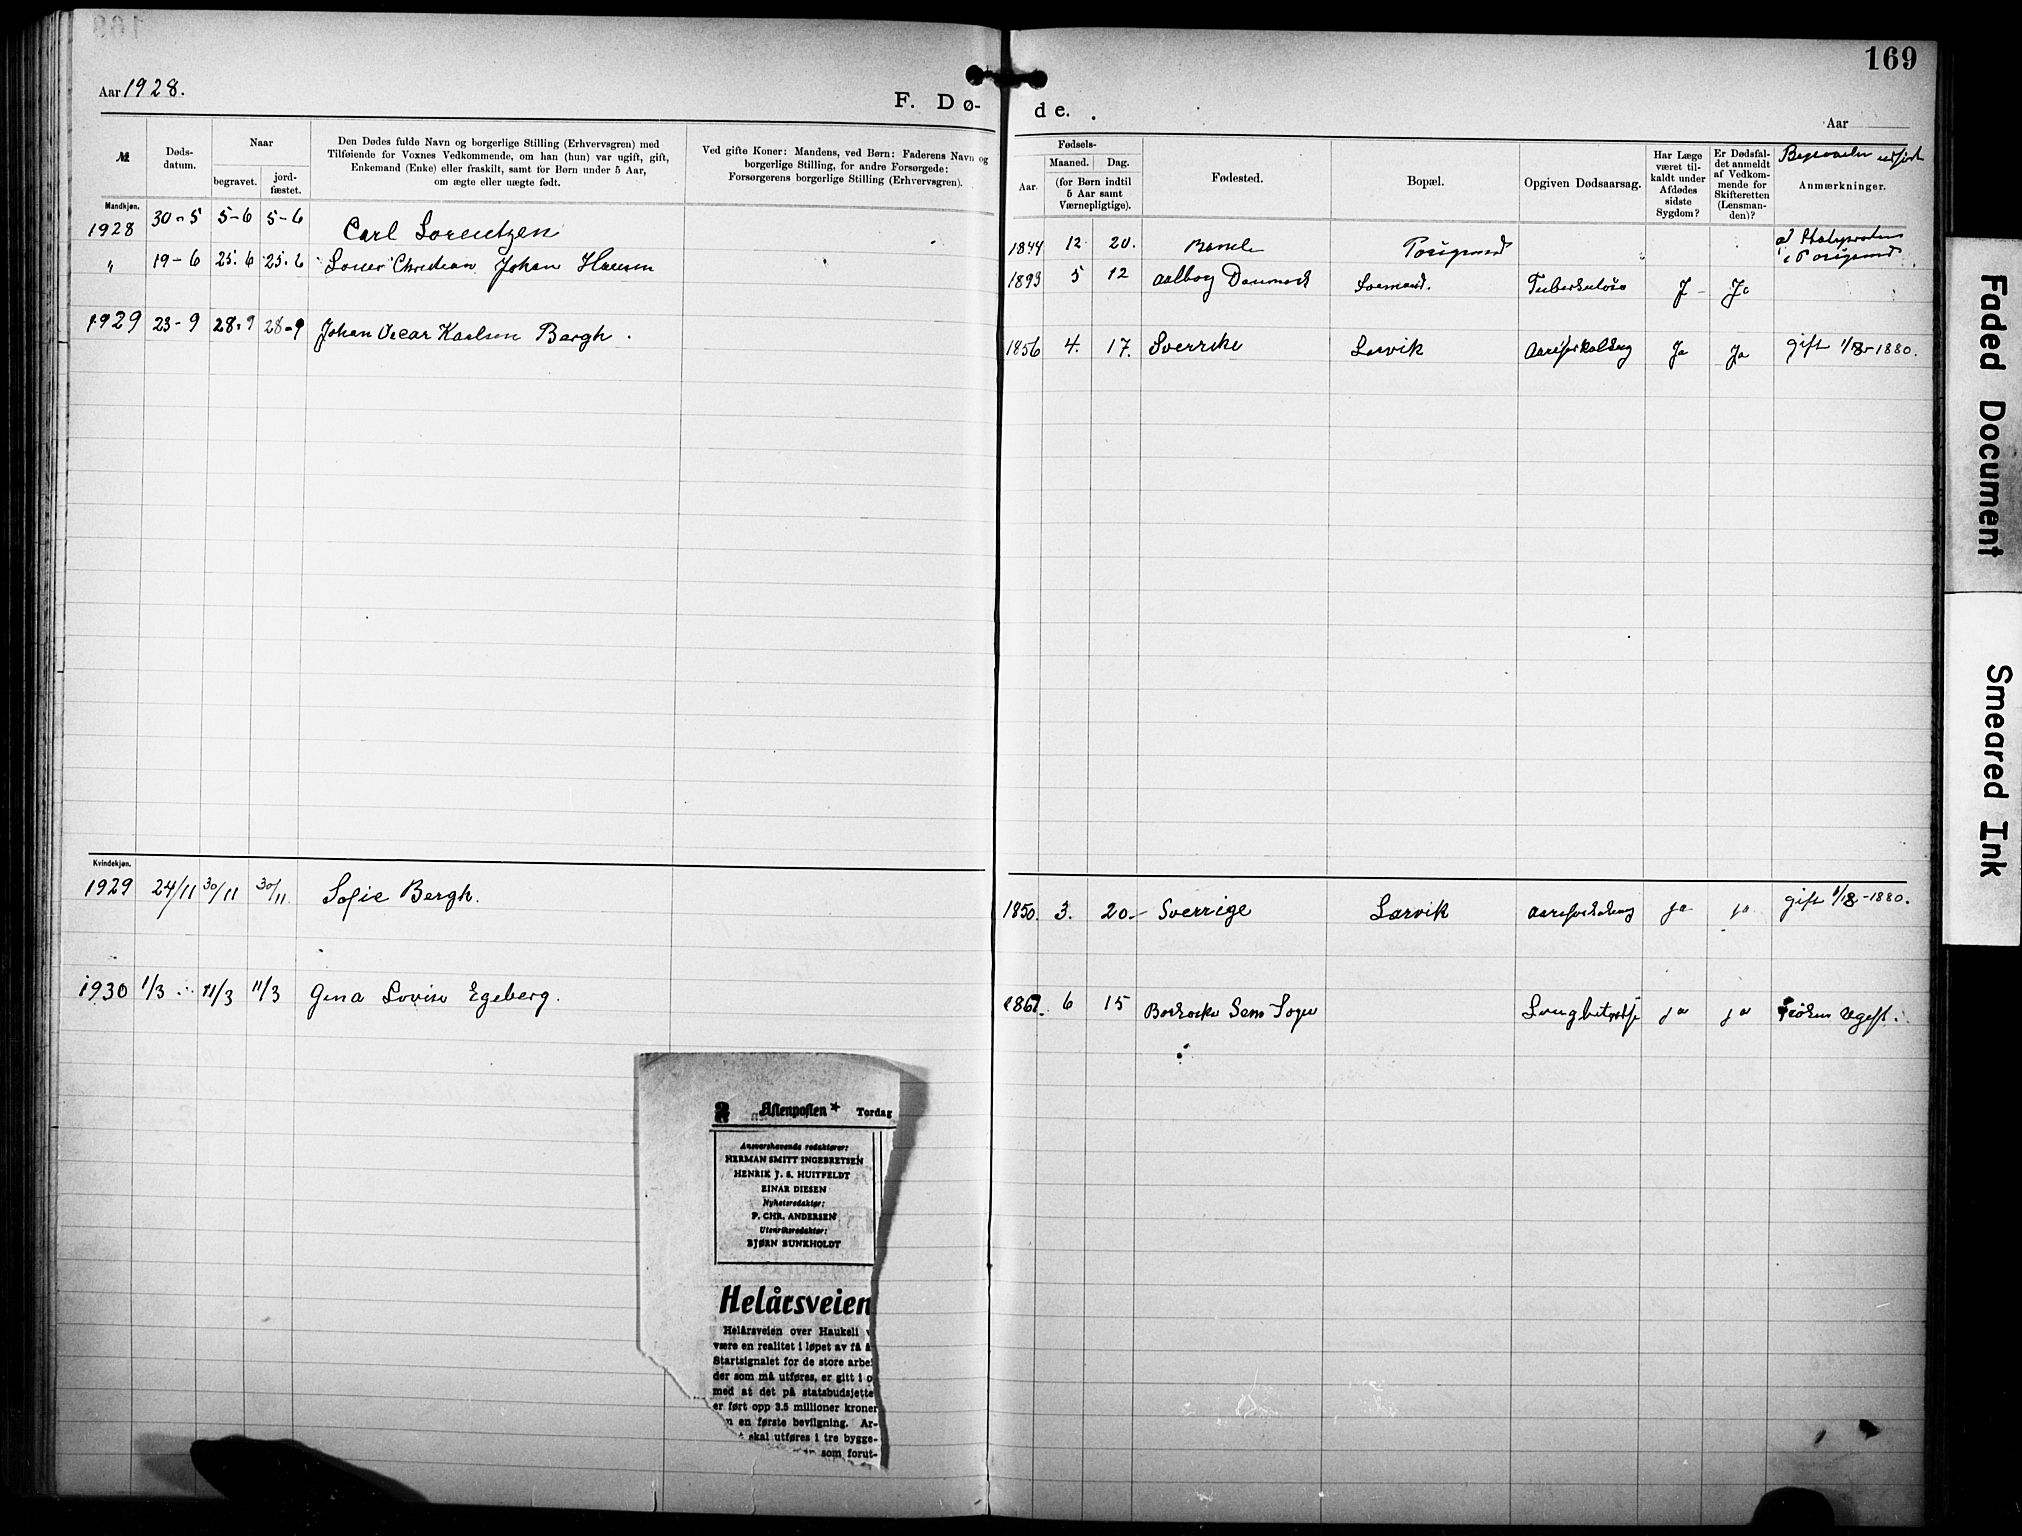 169
Aar 1928.
F. Dø-
de.
Aar
№
Døds-
datum.
Naar
begravet.
jord-
fæstet.
Den Dødes fulde Navn og borgerlige Stilling (Erhvervsgren) med
Tilføiende for Voxnes Vedkommende, om han (hun) var ugift, gift,
Enkemand (Enke) eller fraskilt, samt for Børn under 5 Aar,
om ægte eller uægte født.
Ved gifte Koner: Mandens, ved Børn: Faderens Navn og
borgerlige Stilling, for andre Forsørgede:
Forsørgerens borgerlige Stilling (Erhvervsgren).
Fødsels-
Aar.
Maaned.
Dag.
(for Børn indtil
5 Aar samt
Værnepligtige).
Fødested.
Bopæl.
Opgiven Dødsaarsag.
Har Læge
været til-
kaldt under
Afdødes
sidste
Sygdom?
Er Dødsfal-
det anmeldt
af Vedkom-
mende for
Skifteretten
(Lensman-
den)?
Anmærkninger.
Mandkjøn.
1928 30-5 5-6 5-6 Carl Lorentzen 1844 12 20.
" 19-6 25.6 25.6 Christian Johan Hansen 1893 5 12 Aalborg Danmark Tuberkulose J Ja
1929 23-9 28-9 28-9 Johan Oscar Karlsen Bergh. 1856 4. 17. Sverrike Larvik Ja Ja gift 1880.
Kvindekjøn.
1929 24/11 30/11 30/11 Sofie Bergh. 1850. 3. 20. Sverrige Larvik ja ja gift 1880.
1930 1/3 11/3 11/3 Gina Lovise Egeberg. 6 15 Sem Sogn ja ja Frøken Ugift.
2 Aftenposten * Torsdag
Ansvarshavende redaktører:
HERMAN SMITT INGEBRETSEN
HENRIK J. S. HUITFELDT
EINAR DIESEN
Nyhetsredaktør:
P. CHR. ANDERSEN
Utenriksredaktør:
BJØRN BUNKHOLDT
Helårsveien
Helårsveien over Haukeli v
være en realitet i løpet av få å
Startsignalet for de store arbei
der som må utføres, er gitt i o
med at det på statsbudsjette
er ført opp 3.5 millioner kroner
en første bevilgning. Ar-
skal utføres i tre bygge-
som forut-
Faded Document
Smeared Ink